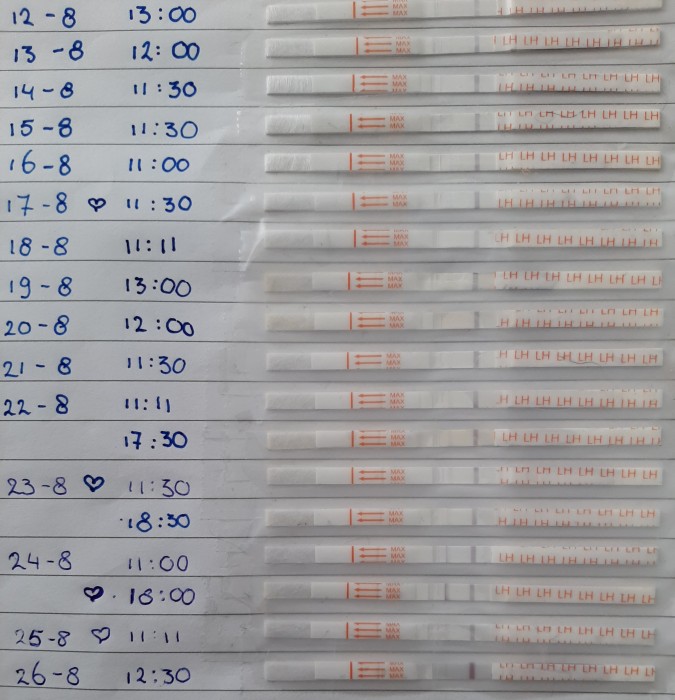 12-8 13:00 MAX MAX
13-8 12:00 MAX MAX MAX LH LH LH LH LH LH LH LH
14-8 11:30 MAX MAX MAX LH LH LH LH LH LH LH
15-8 11:30 MAX MAX MAX LH LH LH LH LH LH LH
16-8 11:00 MAX MAX MAX LH LH LH LH LH LH LH LH
17-8 ♥ 11:30 MAX MAX MAX LH LH LH LH LH LH LH
18-8 11:11 MAX MAX MAX LH LH LH LH LH LH LH
19-8 13:00 MAX MAX MAX LH LH LH LH LH LH LH
20-8 12:00 MAX MAX MAX LH LH LH LH LH LH LH
21-8 11:30 MAX MAX MAX LH LH LH LH LH LH LH
22-8 11:11 MAX MAX MAX LH LH LH LH LH LH LH
17:30 MAX MAX MAX LH LH LH LH LH LH LH LH
23-8 ♥ 11:30 MAX MAX MAX LH LH LH LH LH LH LH
18:30 MAX MAX MAX LH LH LH LH LH LH LH
24-8 11:00 MAX MAX MAX LH LH LH LH LH LH LH LH
♥ 18:00 MAX MAX MAX LH LH LH LH LH LH LH LH
25-8 ♥ 11:11 MAX MAX MAX LH LH LH LH LH LH LH
26-8 12:30 MAX MAX MAX LH LH LH LH LH LH LH